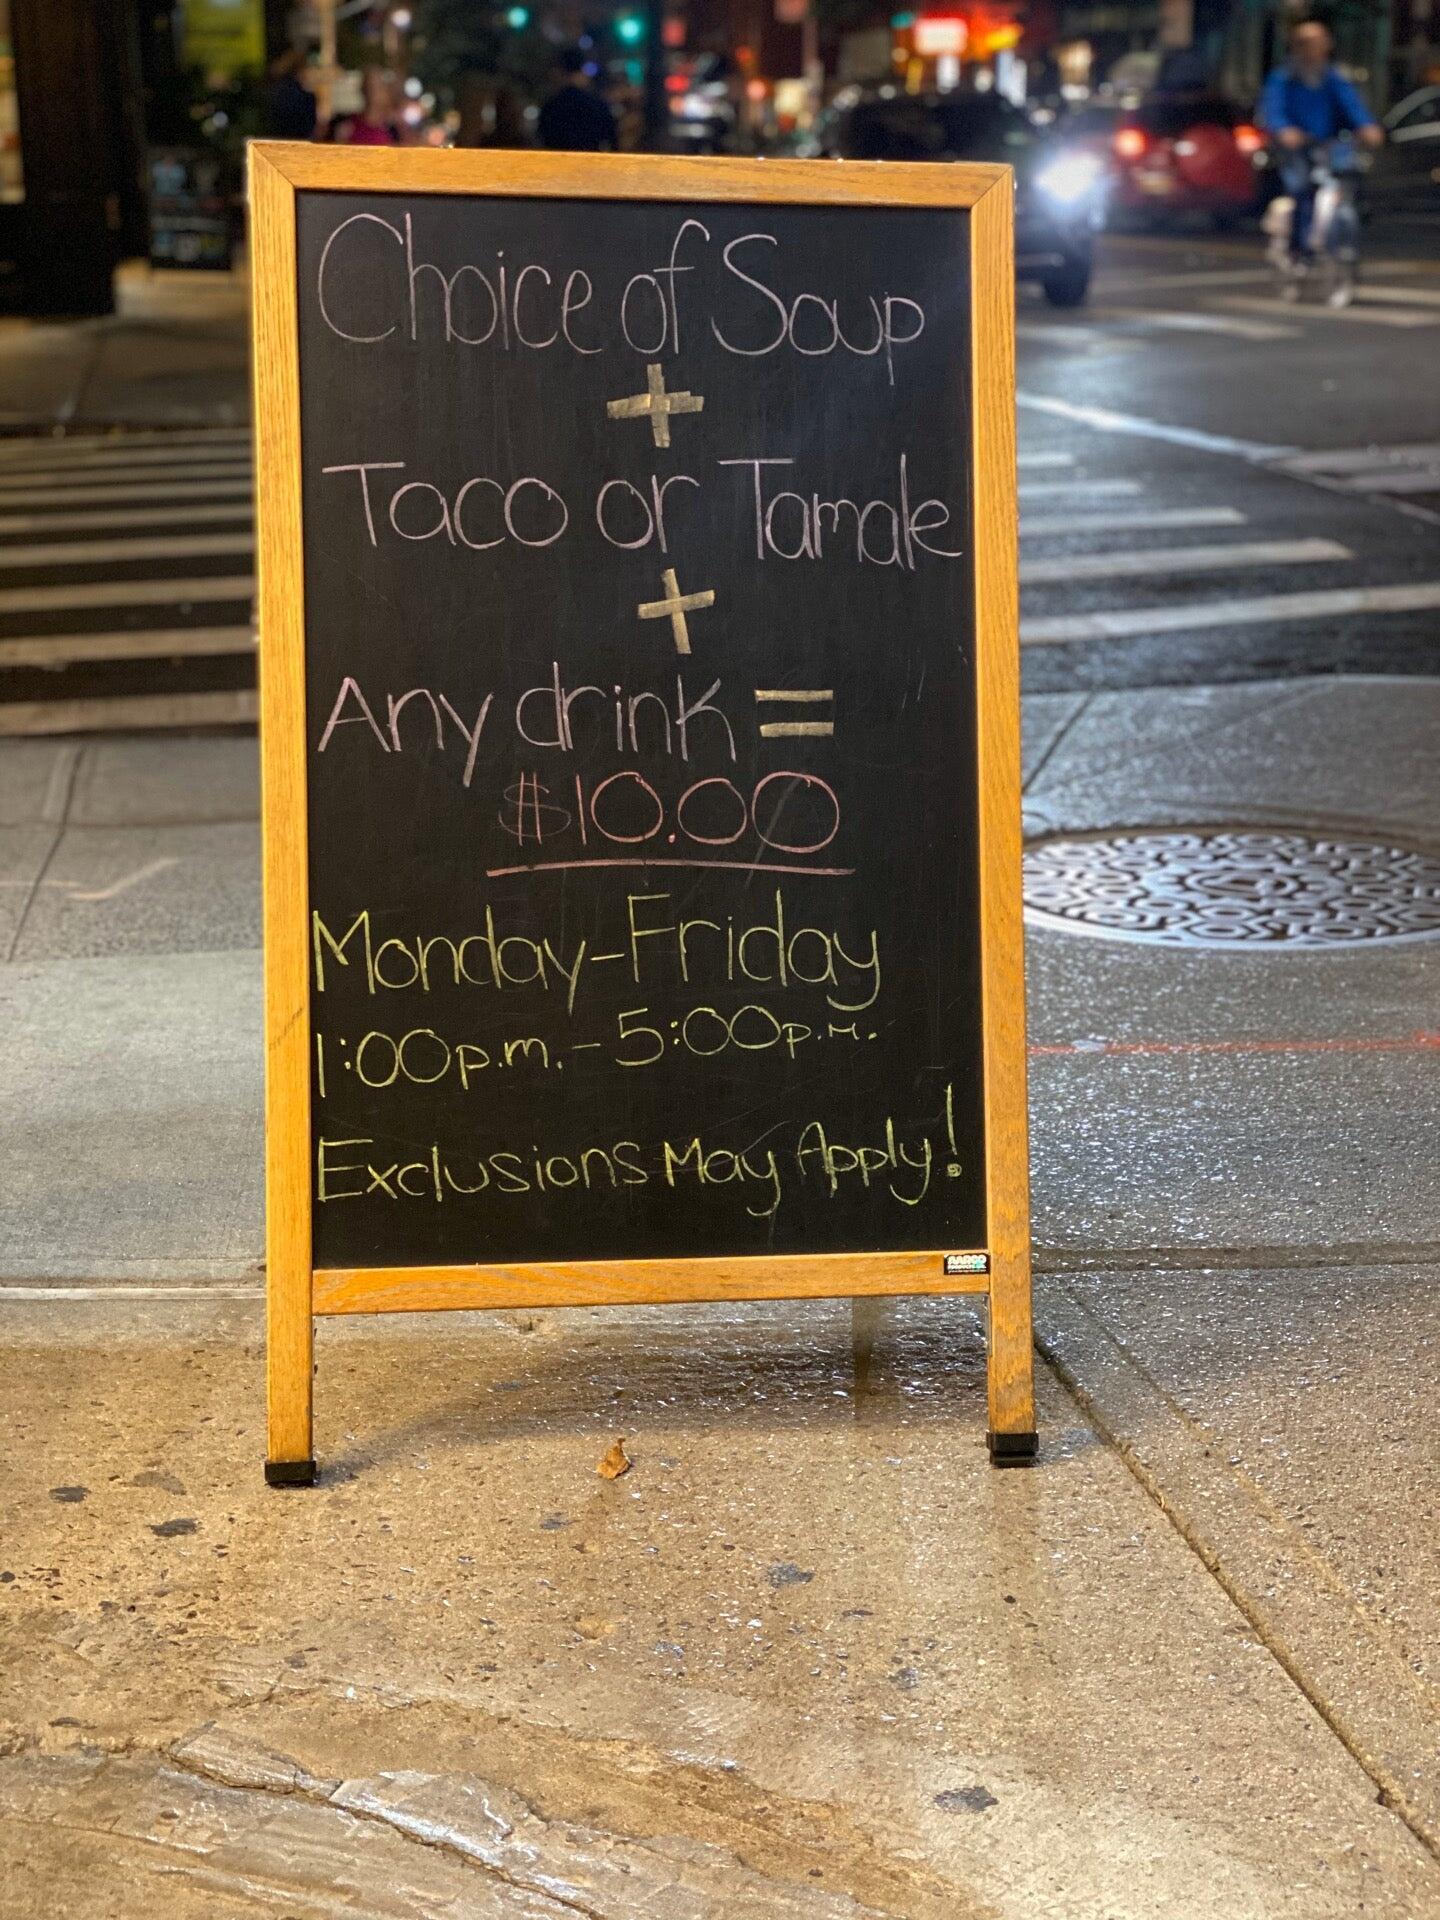 Choice of Soup
+
Taco or Tamale
+
Any drink =
$10.00
Monday-Friday
1:00p.m.-5:00p.m.
Exclusions May Apply!
AARCO